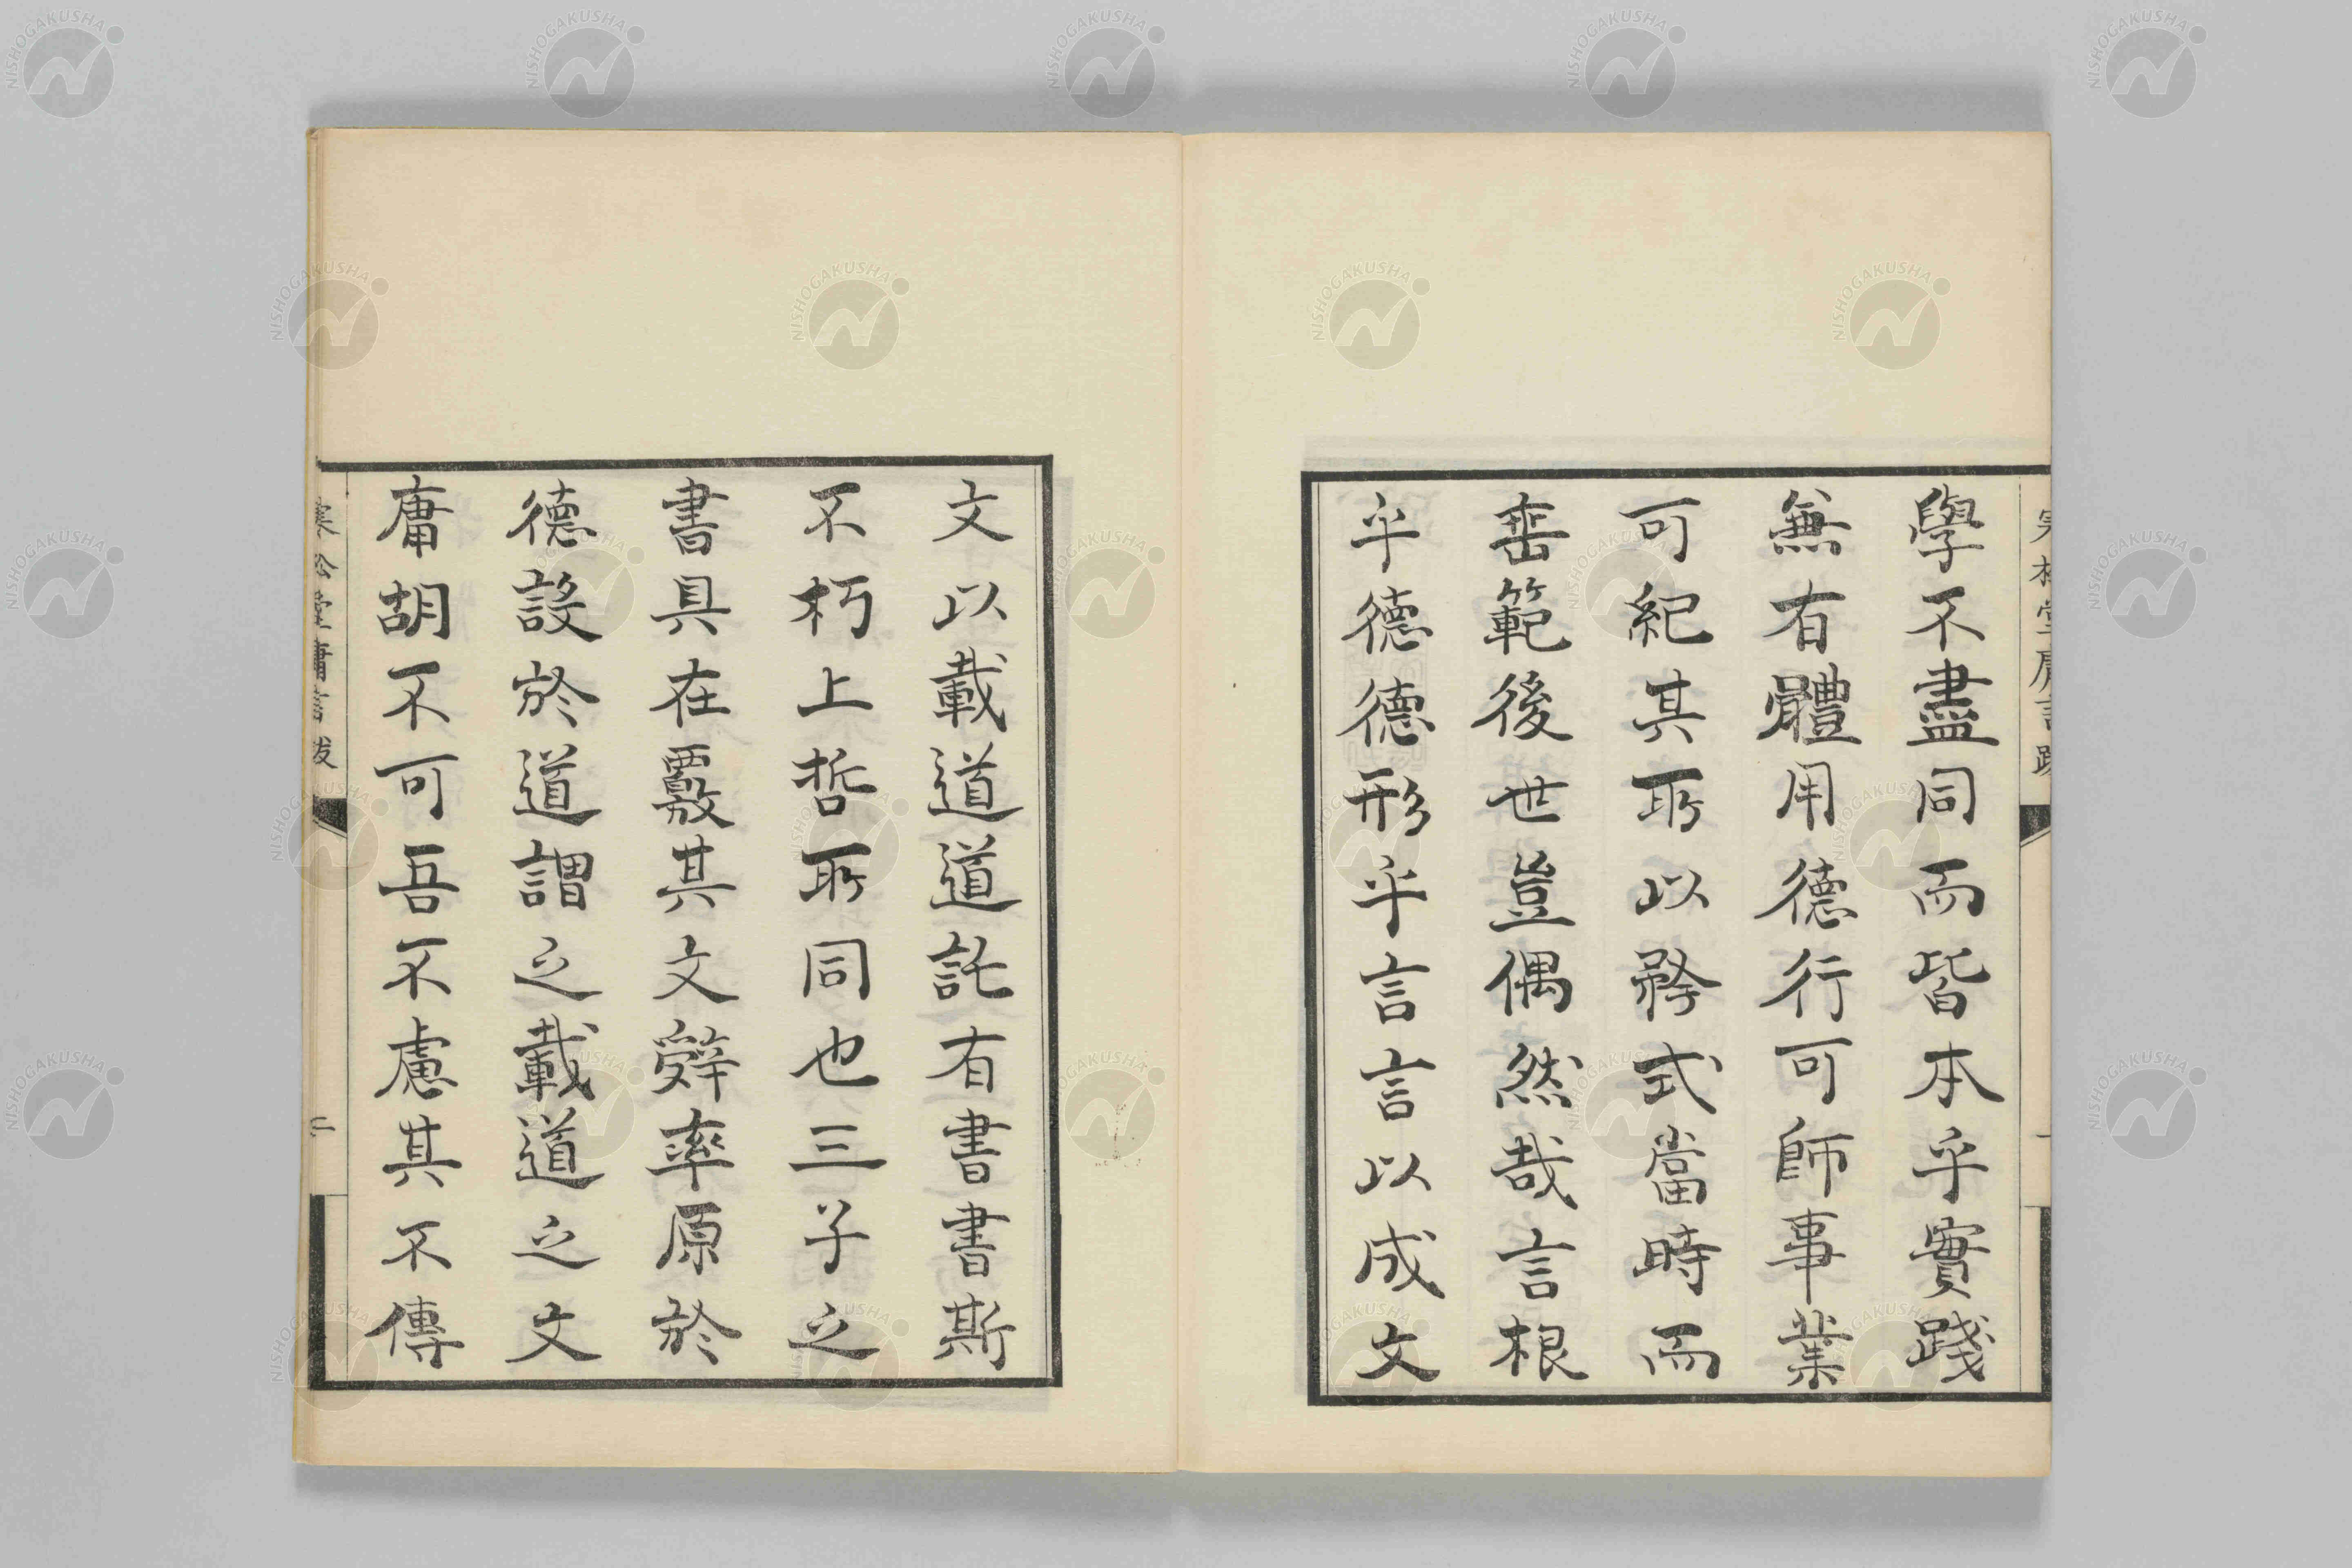 寒松堂庸言跋
一
學不盡同而皆本乎實踐
無有體用德行可師事業
可紀其所以矜式當時而
垂範後世豈偶然哉言根
乎德德形乎言言以成文
文以載道道託有書書斯
不朽上哲所同也三子之
書具在覈其文辭率原於
德設於道謂之載道之文
庸胡不可吾不慮其不傳
寒松堂庸言跋
二
NISHOGAKUSHA